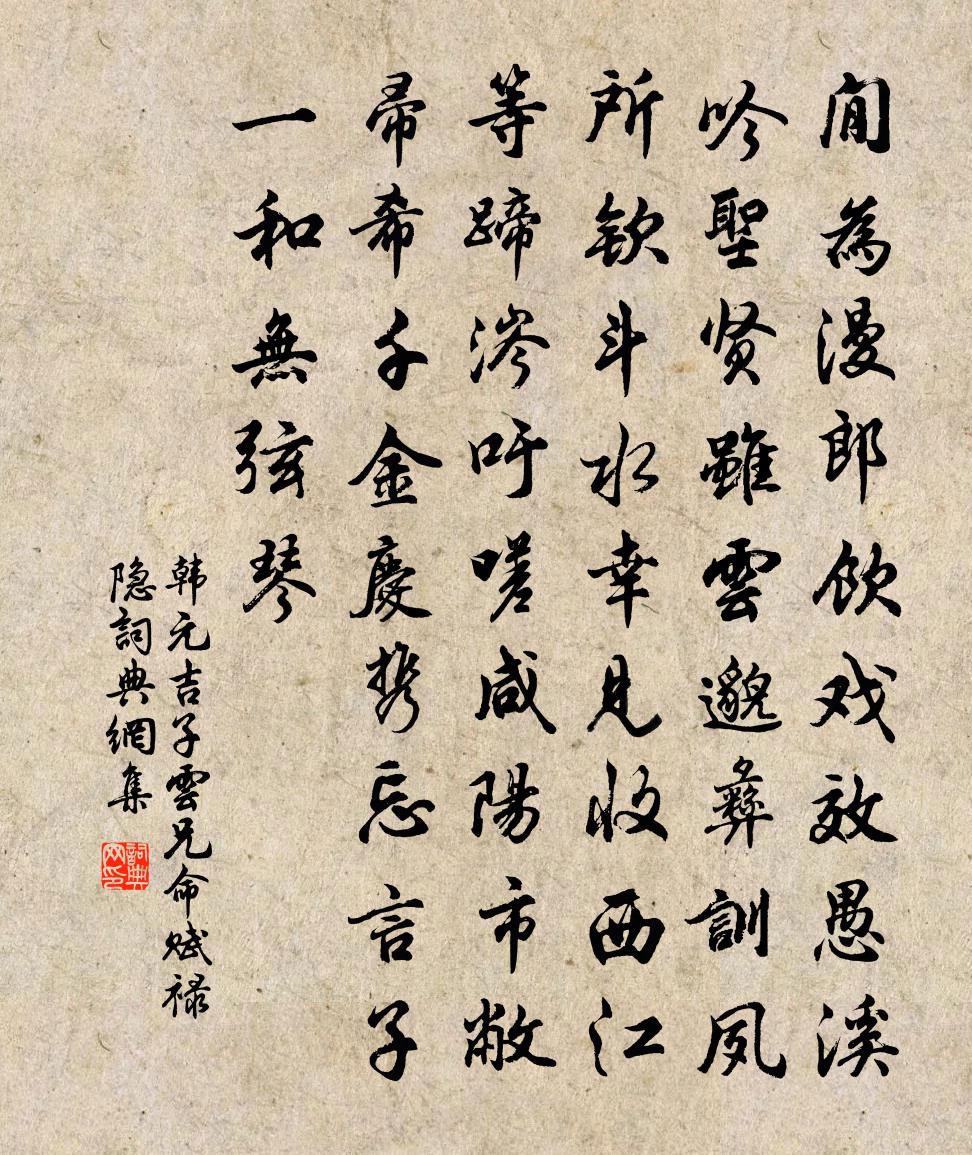 閒為漫郎飲戏效愚溪
吟聖贤雖雲邈彝訓夙
所欽斗水幸見收西江
等蹄涔吁嗟咸陽市敝
帚希千金慶携忘言子
一和無弦琴
韩元吉子雲兄命赋禄
隐詞典網集
詞典
网印